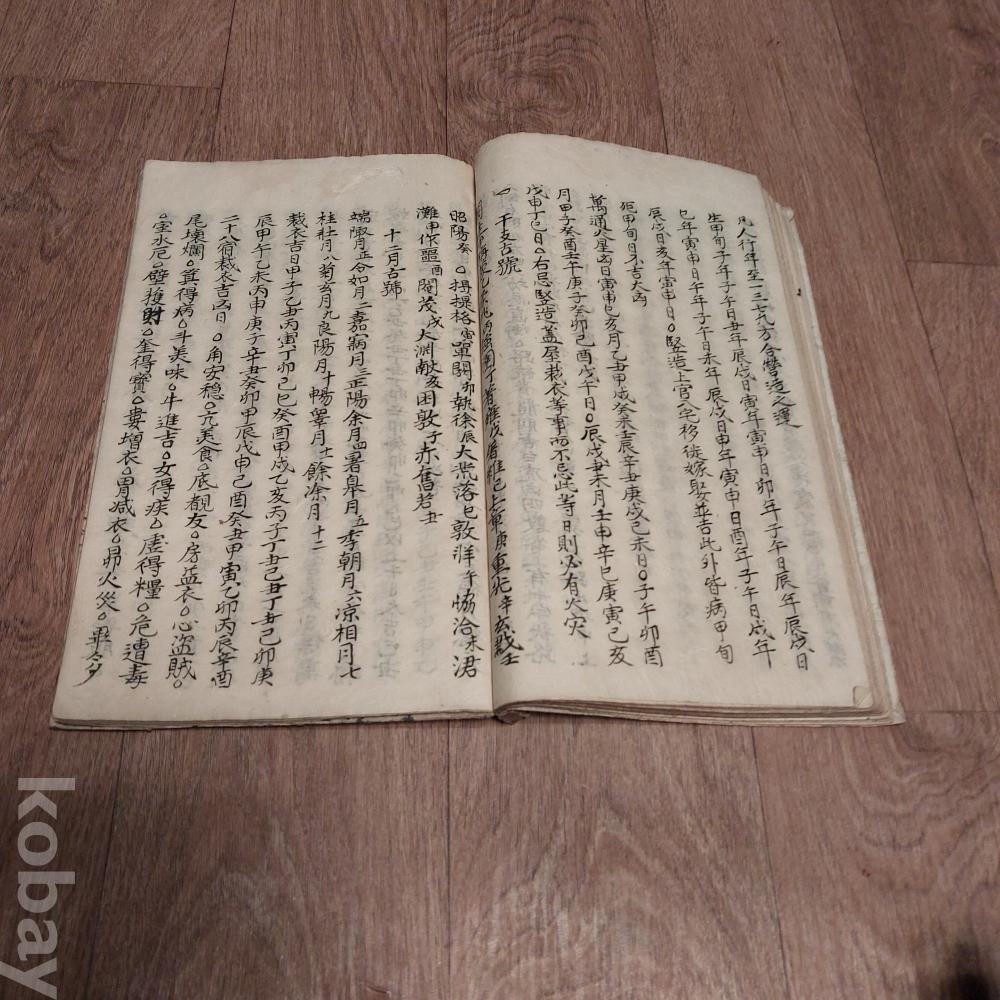 凡人行年至一三七九方合營造之運
生甲旬子年子午日丑年辰戌日寅年寅申日卯年子午日辰年辰戌日
巳年寅申日午年子午日未年辰戌日申年寅申日酉年子午日戌年
辰戌日亥年寅申日○竪造上官入宅移徙嫁娶並吉此外皆病甲旬
死甲旬日不吉大凶
萬通火星凶日寅申巳亥月乙丑甲戌癸未壬辰辛丑庚戌己未日○子午卯酉
月甲子癸酉壬午庚子癸卯己酉戊午日○辰戌丑未月壬申辛巳庚寅己亥
戊申丁巳日○右忌竪造盖屋裁衣等事而不忌此等日則必有火灾
干支古號
著雍戊屠維己上章庚重光辛玄黓壬
昭陽癸○攝提格寅單閼卯執徐辰大荒落巳敦牂午協洽未涒
灘申作噩酉閹茂戌大淵献亥困敦子赤奮若丑
十二月古號
端陬月正令如月二嘉寎月三正陽余月四暑皐月五季朝月六凉相月七
桂壯月八菊玄月九良陽月十暢辜月十一餘涂月十二
裁衣吉日甲子乙丑丙寅丁卯己巳癸酉甲戌乙亥丙子丁丑己丑丁丑己卯庚
辰甲午乙未丙申庚子辛丑癸卯甲辰戊申己酉癸丑甲寅乙卯丙辰辛酉
二十八宿裁衣吉凶日○角安穏○亢美食○底觀友○房益衣○心盗賊○
尾壞爛○箕得病○斗美味○牛進吉○女得疾○虛得糧○危遭毒
○室水厄○壁獲財○奎得寶○婁增衣○胃减衣○昴火災○畢
kobay